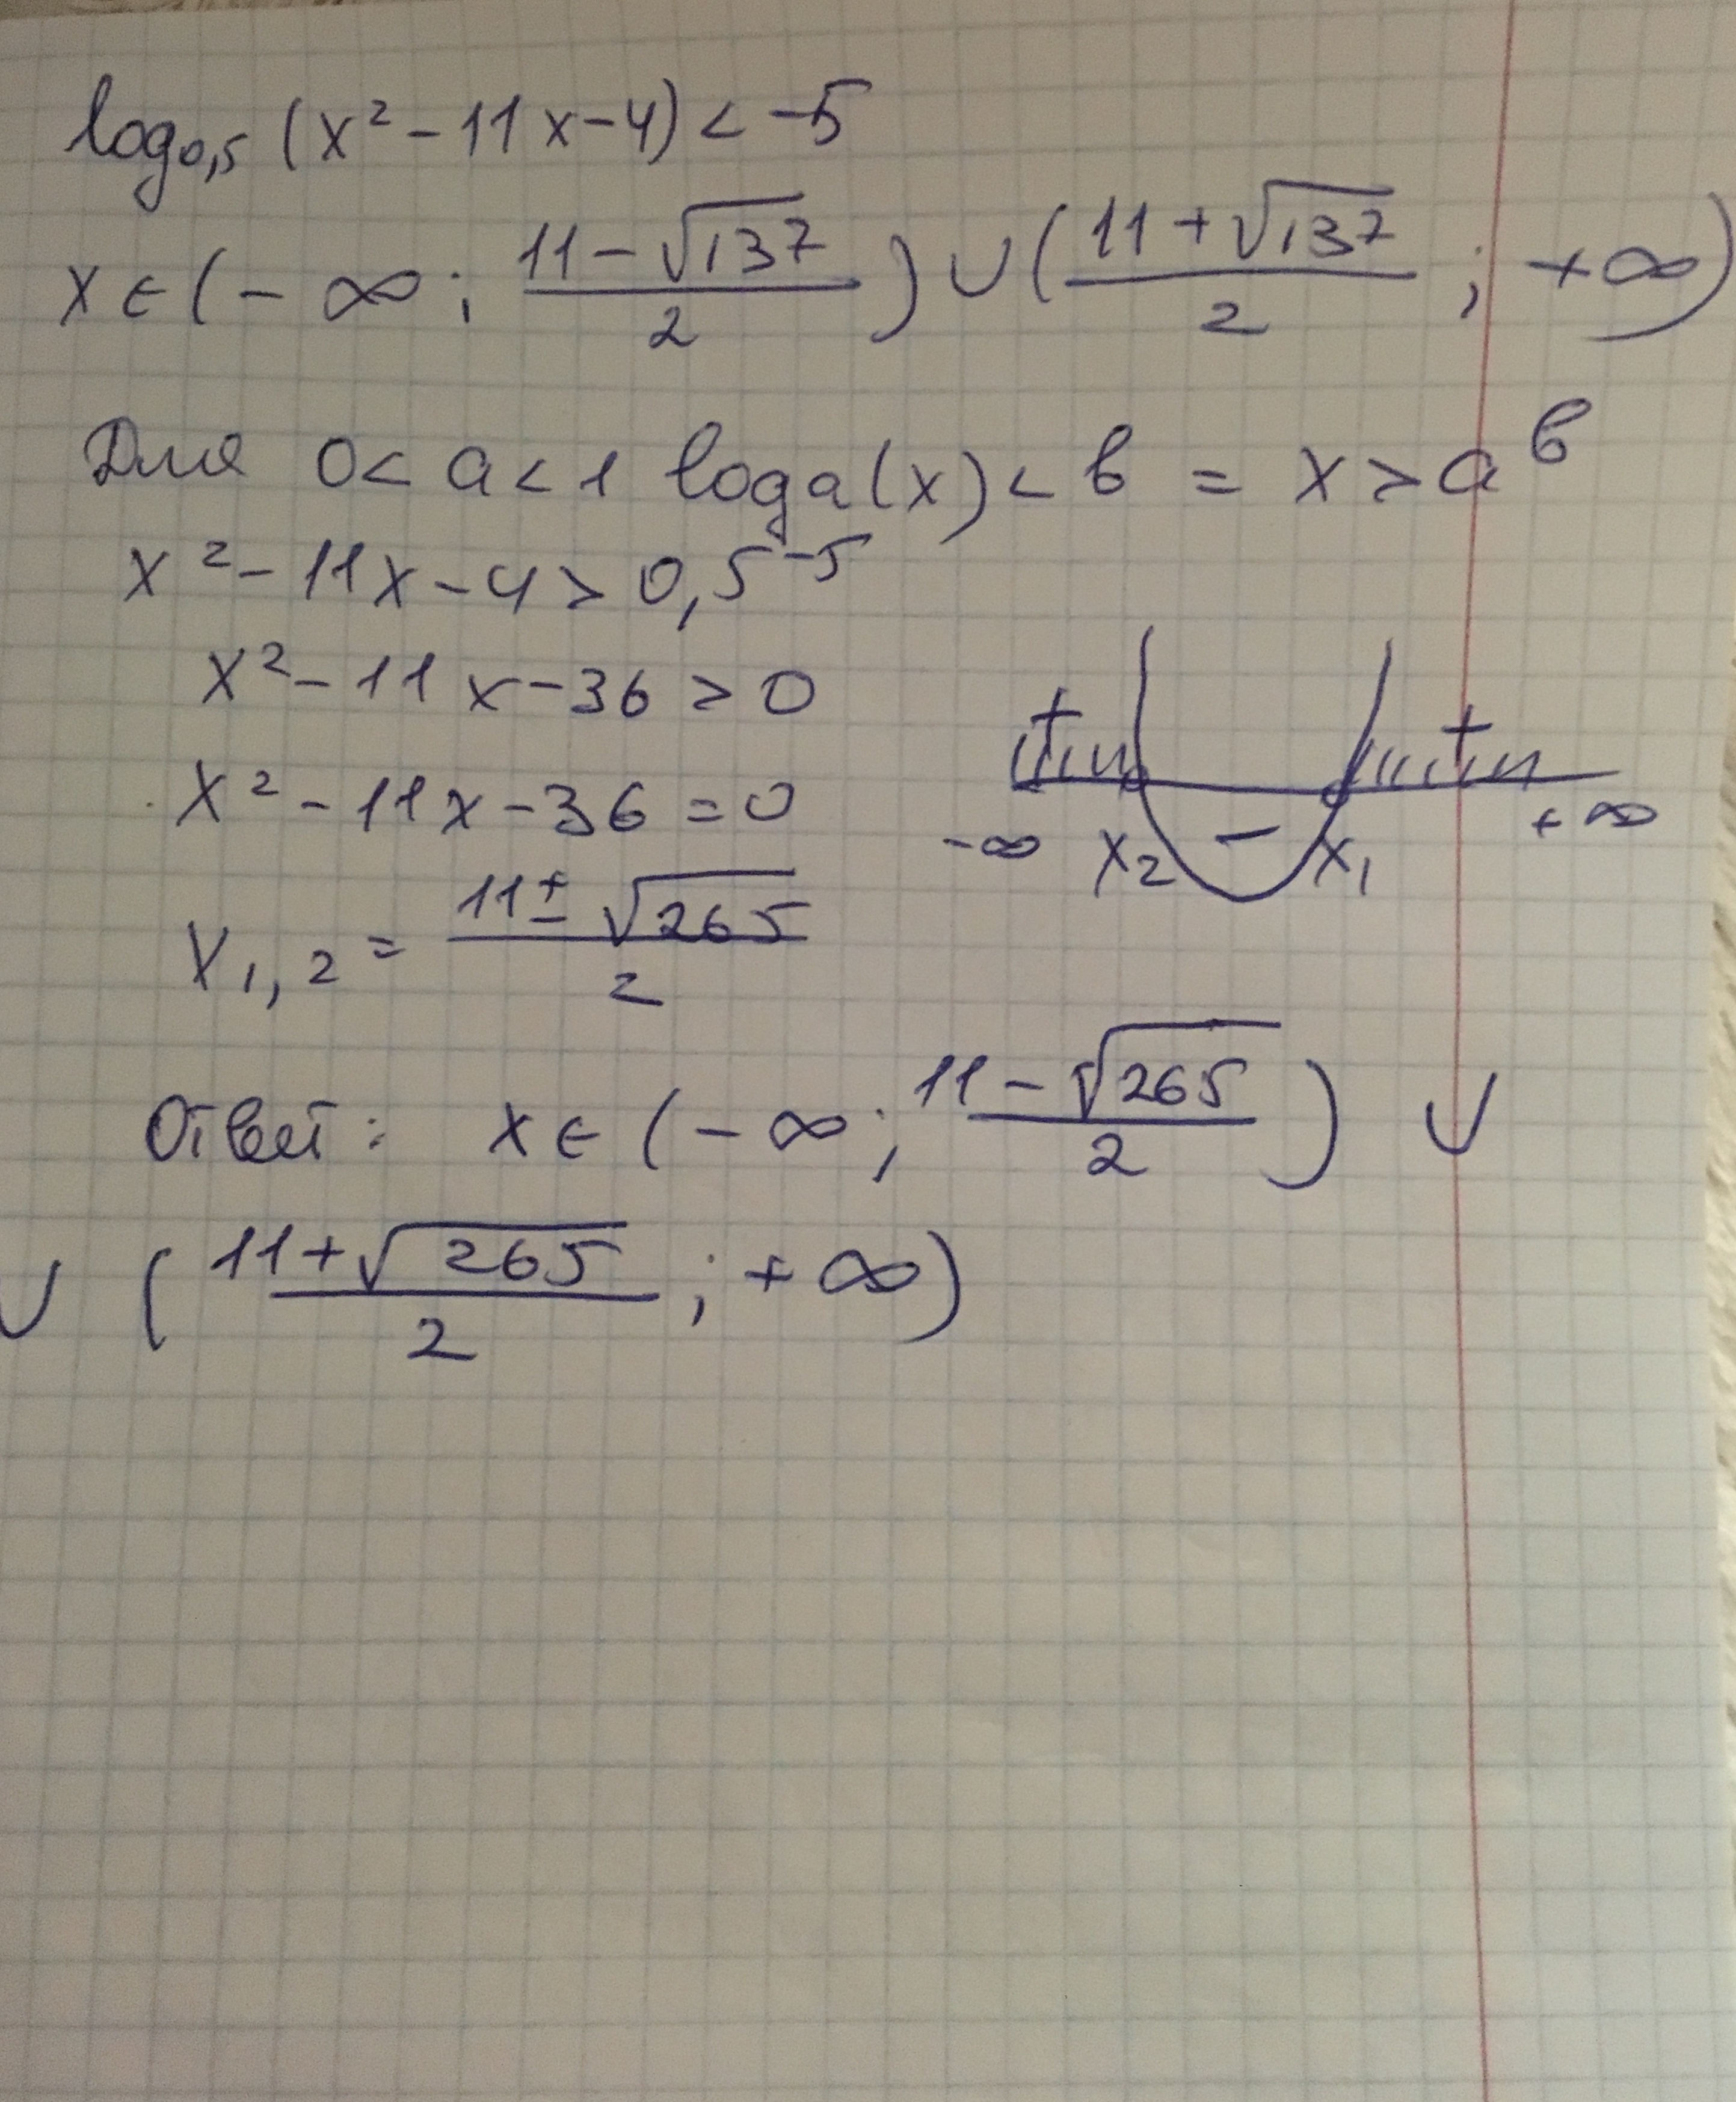 log₀,₅ (x² - 11x - 4) < -5
x ∈ (-∞; (11 - √137)/2) ∪ ((11 + √137)/2; +∞)
Для 0 < a < 1 logₐ(x) < b = x > aᵇ
x² - 11x - 4 > 0,5⁻⁵
x² - 11x - 36 > 0
x² - 11x - 36 = 0
+ +
-∞ x₂ - x₁ +∞
x₁,₂ = (11 ± √265)/2
Ответ: x ∈ (-∞; (11 - √265)/2) ∪
∪ ((11 + √265)/2; +∞)